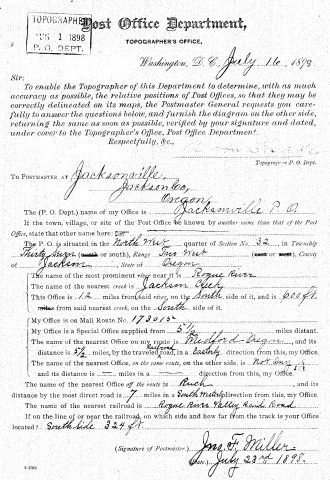 TOPOGRAPHER
AUG 1 1898
P. O. DEPT.
Post Office Department,
TOPOGRAPHER'S OFFICE,
Washington, D. C. July 16, 1898.
Sir:
To enable the Topographer of this Department to determine, with as much
accuracy as possible, the relative positions of Post Offices, so that they may be
correctly delineated on its maps, the Postmaster General requests you care-
fully to answer the questions below, and furnish the diagram on the other side,
returning the same as soon as possible, verified by your signature and dated,
under cover to the Topographer's Office, Post Office Department.
Respectfully, &c.,
Topographer P. O. Dept.
To POSTMASTER AT Jacksonville,
Jackson Co,
Oregon
The (P. O. Dept.) name of my Office is Jacksonville P. O.
If the town, village, or site of the Post Office be known by another name than that of the Post
Office, state that other name here:
The P. O. is situated in the North West quarter of Section No. 32, in Township
Thirty Seven (north or south), Range Two West (east or west), County
of Jackson, State of Oregon
The name of the most prominent river near it is Rogue River
The name of the nearest creek is Jackson Creek
This Office is 12 miles from said river, on the South side of it, and 600 ft.
miles from said nearest creek, on the South side of it.
My Office is on Mail Route No. 173015
My Office is a Special Office supplied from 5½ miles distant.
The name of the nearest Office on my route is Medford Oregon, and its
distance is 5½ miles, by the traveled road, in a Easterly direction from this, my Office.
Railroad
The name of the nearest Office, on the same route, on the other side, is Not any
and its distance is — miles in a — direction from this, my Office.
The name of the nearest Office off the route is Ruch, and its
distance by the most direct road is 7 miles in South Westerly direction from this, my Office.
The name of the nearest railroad is Rogue River Valley Rail Road
If on the line of or near the railroad, on which side and how far from the track is your Office
located? South Side 324 ft.
(Signature of Postmaster.) Jno. F. Miller
(Date.) July 23rd 1898.